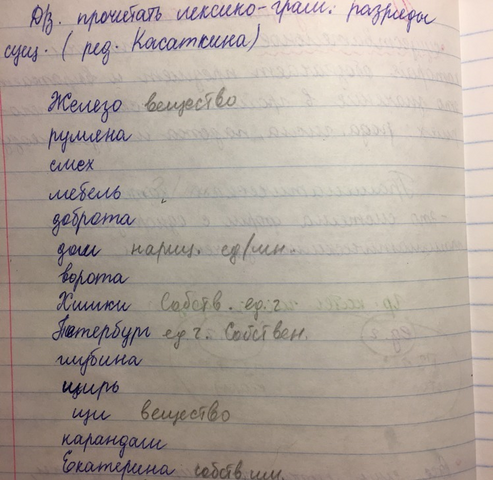 Д/З. прочетать лексико-грам. разряды
сущ. ( ред. Касаткина)
Железо вещество
румяна
смех
мебель
доброта
дом нариц. ед/мн.
ворота
Химки Собств. ед. ч.
Петербург ед ч. Собствен.
глубина
ширь
щи вещество
карандаш
Екатерина собств. им.